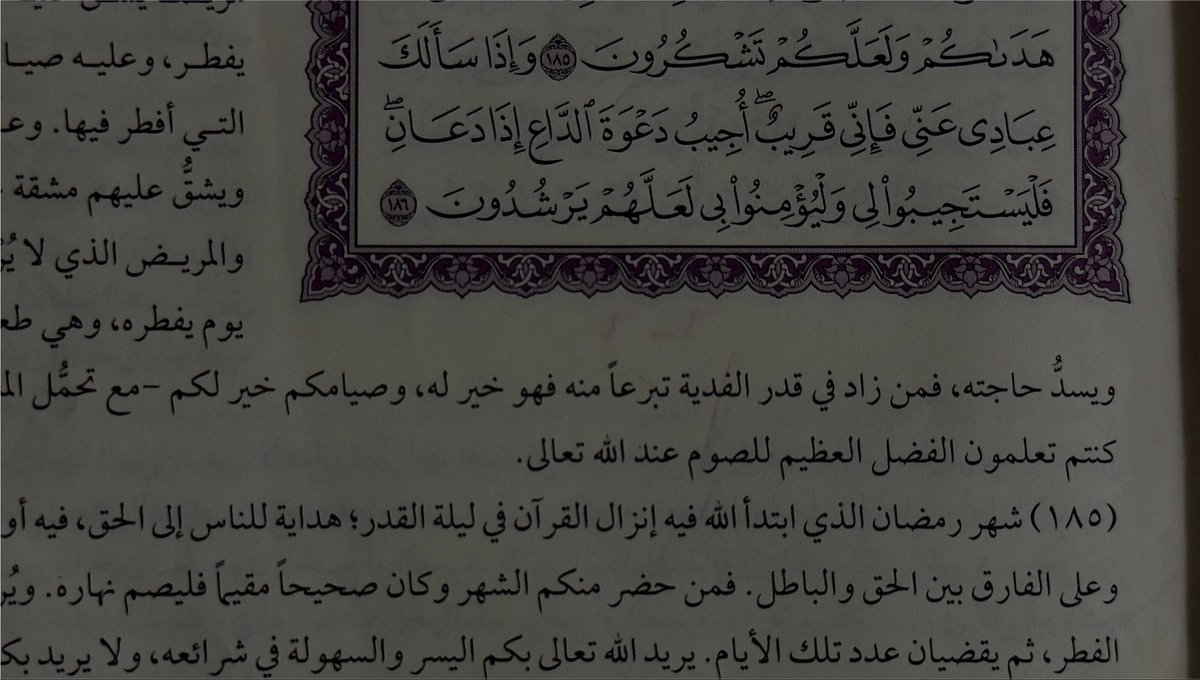 هَدَىٰكُمْ وَلَعَلَّكُمْ تَشْكُرُونَ ١٨٥ وَإِذَا سَأَلَكَ
عِبَادِى عَنِّى فَإِنِّى قَرِيبٌ ۖ أُجِيبُ دَعْوَةَ ٱلدَّاعِ إِذَا دَعَانِ ۖ
فَلْيَسْتَجِيبُوا۟ لِى وَلْيُؤْمِنُوا۟ بِى لَعَلَّهُمْ يَرْشُدُونَ ١٨٦
يفطـر، وعليـه صيـا
التـي أفطر فيها. وعـ
ويشقُّ عليهم مشقة
والمريـض الذي لا
يوم يفطره، وهي طعـ
ويسدُّ حاجته، فمن زاد في قدر الفدية تبرعاً منه فهو خير له، وصيامكم خير لكم -مع تحمُّل
كنتم تعلمون الفضل العظيم للصوم عند الله تعالى.
(١٨٥) شهر رمضان الذي ابتدأ الله فيه إنزال القرآن في ليلة القدر؛ هداية للناس إلى الحق، فيه
وعلى الفارق بين الحق والباطل. فمن حضر منكم الشهر وكان صحيحاً مقيماً فليصم نهاره.
الفطر، ثم يقضيان عدد تلك الأيام. يريد الله تعالى بكم اليسر والسهولة في شرائعه، ولا يريد